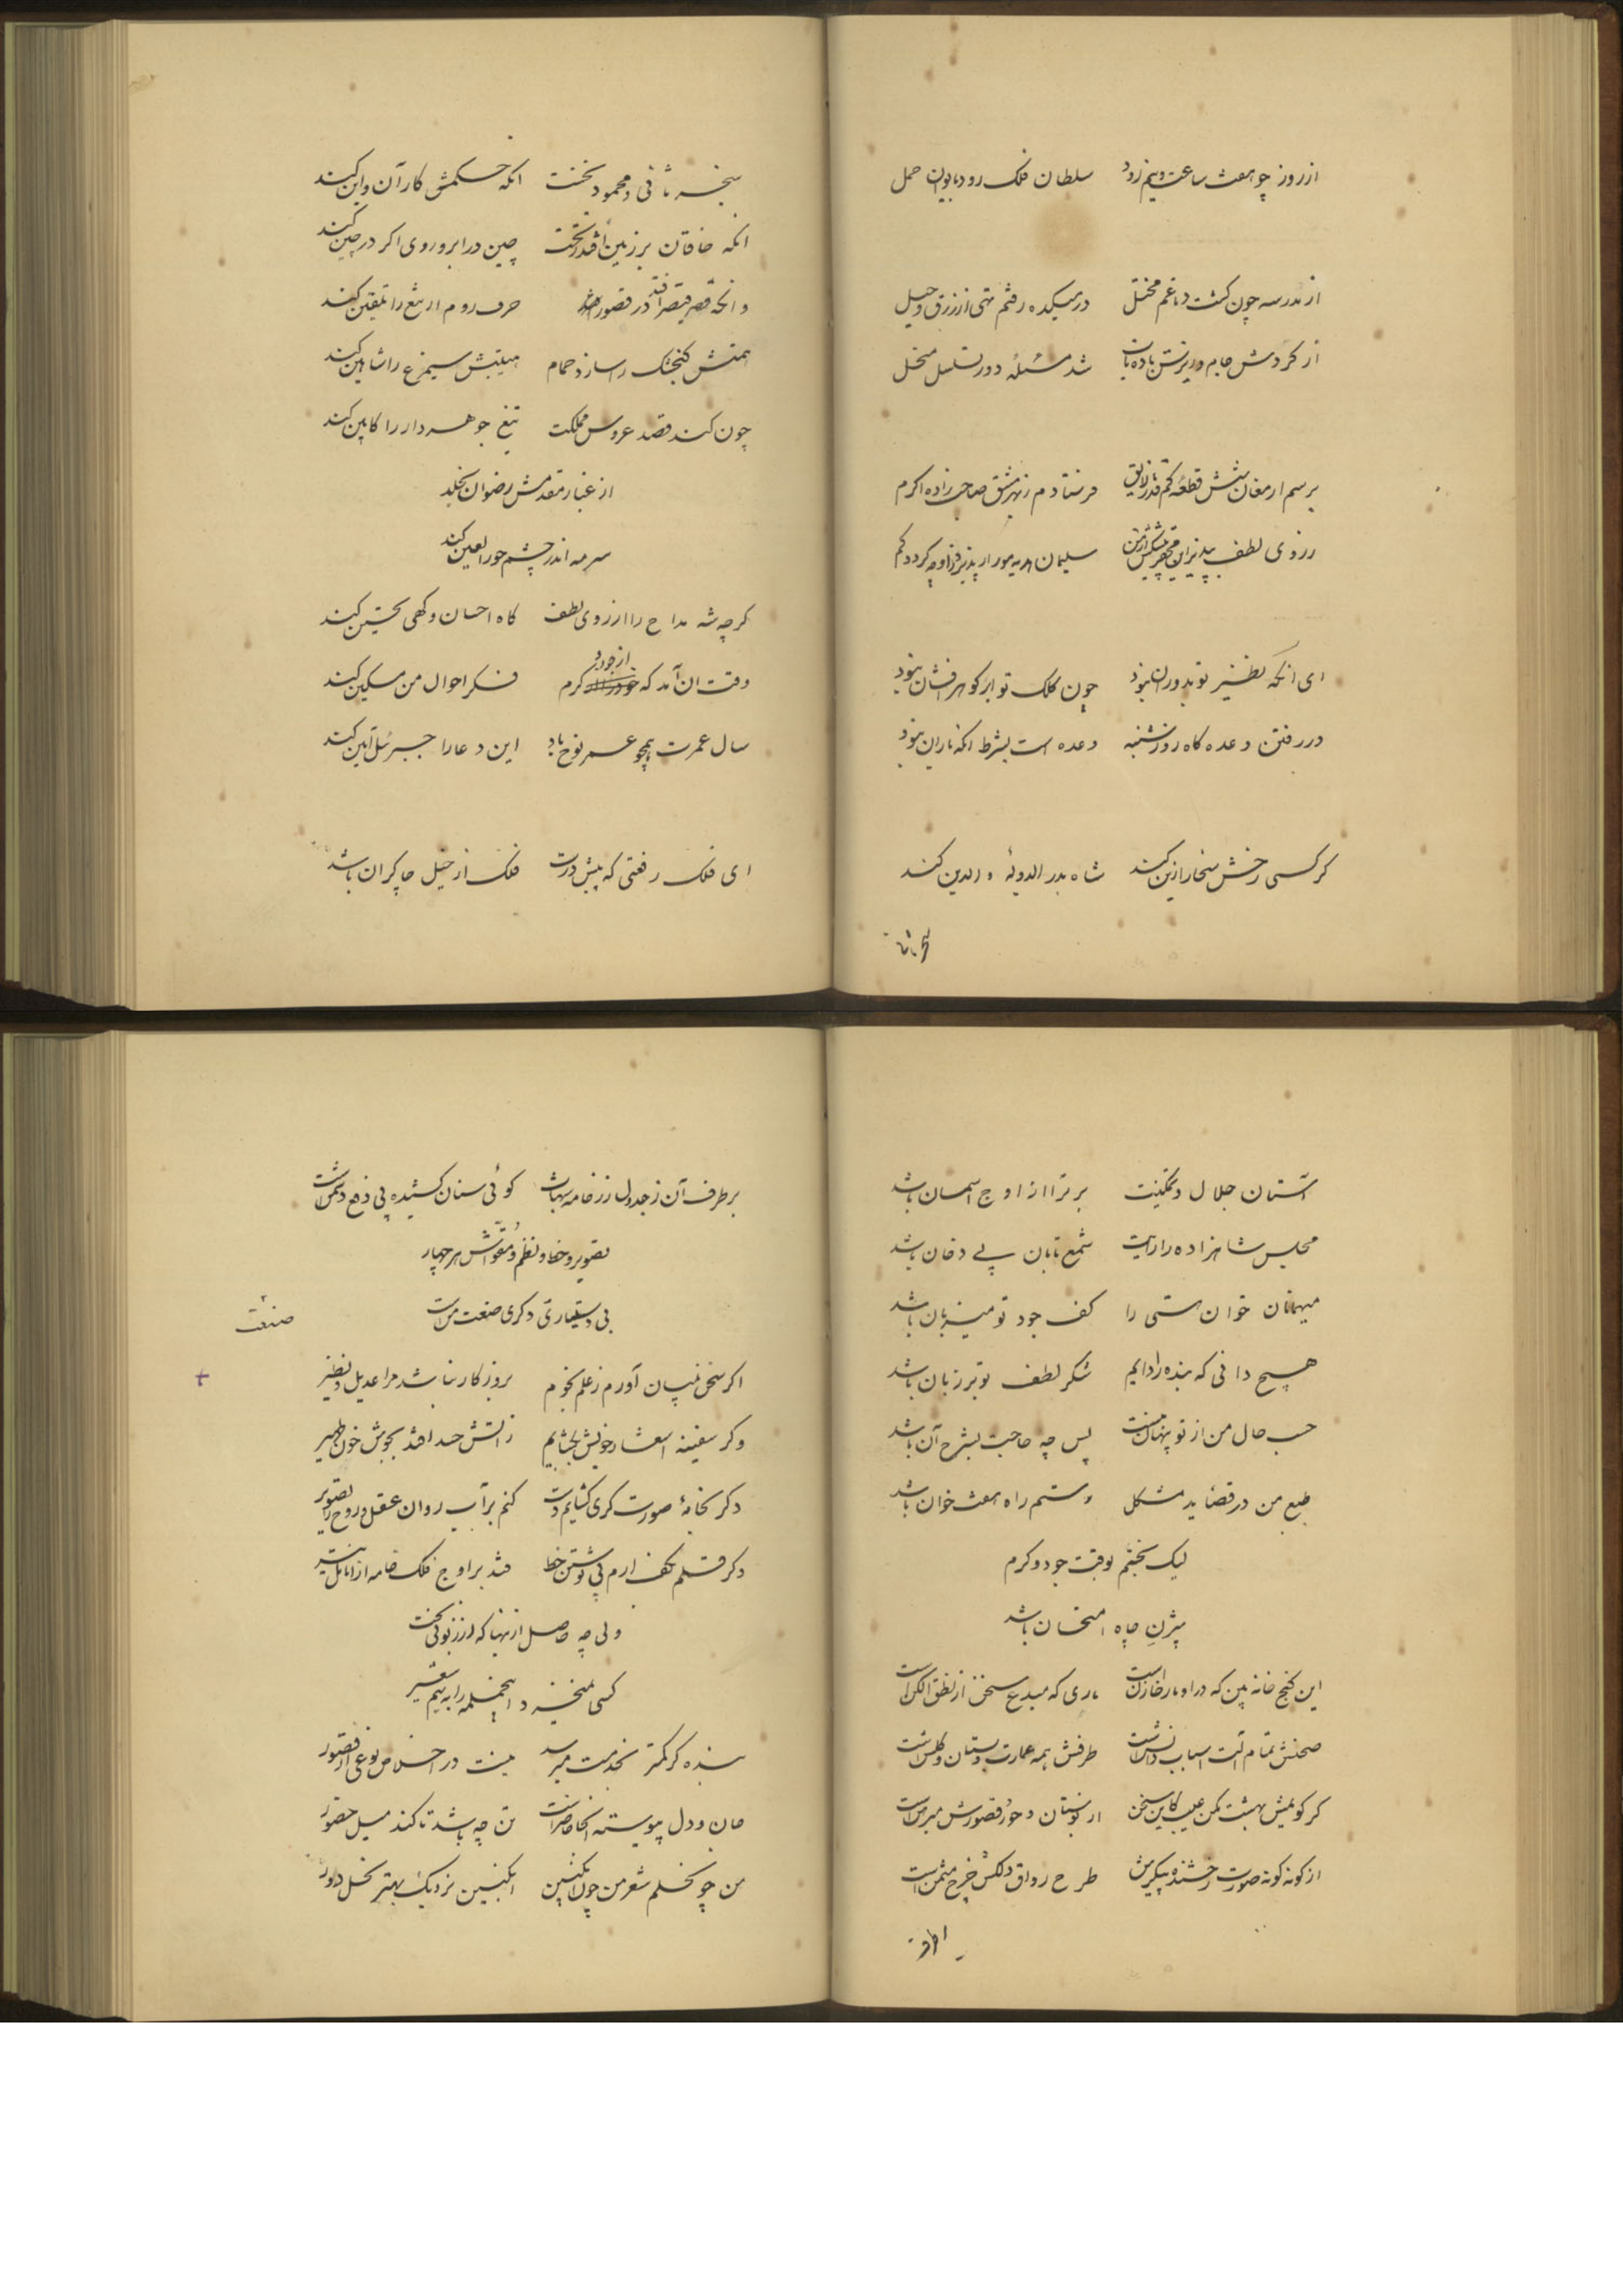 از روز چو هفت ساعت و نیم رود سلطان فلک رود بایوان حمل
از مدرسه چون کشت دماغم مختل در میکده رفتم تهی از زرق و حیل
از کردش جام و ریزش باده ناب شد مسئلهٔ دور تسلسل منحل
برسم ارمغان شش قطعه فرستادم ز بهر مشق صاحب زاده اکرم
ز روی لطف بپذیر این محقر پیشکش از من سلیمان هدیه مور ار پذیرفت از او چه کردد کم
ای آنکه نظیر تو بدوران نبود چون کلک تو ابر کوهر افشان نبود
در رفتن وعده کاه روز شنبه وعده است بشرط آنکه باران نبود
کر کسی رخش سخا را زین کند شاه بدر الدوله والدین کند
سنجر ثانی
سنجر ثانی و محمود نخست آنکه حکمش کار آن و این کند
آنکه خاقان بر زمین افتد ز تخت چین در ابروی اکر در چین کند
وانکه قصر قیصر افتد در قصور حرف روم ار تیغ را تلقین کند
همتش کنجشک را سازد حمام هیبتش سیمرغ را شاهین کند
چون کند قصد عروس مملکت تیغ جوهر دار را کابین کند
از غبار مقدمش رضوان بخلد
سرمه اندر چشم حور العین کند
کرچه شه مداح را از روی لطف کاه احسان و کهی تحسین کند
وقت آن آمد که از جود و کرم فکر احوال من مسکین کند
سال عمرت همچو عمر نوح باد این دعا را جبرئیل آمین کند
ای فلک رفعتی که پیش درت فلک از خیل چاکران باشد
آستان جلال و تمکینت برتر از اوج آسمان باشد
مجلس شاهزاده را رایت شمع تابان بی دخان باشد
میهمانان خوان هستی را کف جود تو میزبان باشد
هیچ دانی که بنده را دایم شکر لطف تو بر زبان باشد
حسب حال من از تو پنهان نیست پس چه حاجت بشرح آن باشد
طبع من در قصاید مشکل رستم راه هفت خوان باشد
لیک بختم بوقت جود و کرم
بیژن چاه امتحان باشد
این کنج خانه بین که در او مار خازن است ماری که مبدع سخن از نطق الکن است
صحنش تمام آلت اسباب دانش است طرفش همه عمارت و بستان و کلشن است
کر کویمش بهشت مکن عیب کاین سخن از بوستان و حور و قصورش مبرهن است
از کونه کونه صورت رخشنده پیکرش طرح رواق دلکش چرخ مثمن است
بر طرف آن ز جدول زر خامه کوئی سنان کشیده پی دفع دشمن است
تصویر و خط و نظم و مقواش هر چهار
بی دستیاری دکری صنعت من است
صنعت
اکر سخن بمیان آورم ز علم نجوم بروزکار نباشد مرا عدیل و نظیر
وکر سفینه اشعار خویش بکشایم ز آتش حسد افتد بجوش خون ظهیر
وکر بخانهٔ صورت کری کشایم دست کنم بر آب روان عقل و روح را تصویر
وکر قلم بکف آرم پی نوشتن خط فتد بر اوج فلک خامه از انامل تیر
ولی چه حاصل از اینها که از زبونی بخت
کسی نمیخرد اینجمله را به نیم شعیر
بنده کر کمتر بخدمت میرسد نیست در اخلاص نوعی از قصور
جان و دل پیوسته آنجا حاضر است تن چه باشد تا کند میل حضور
من چو نخلم شعر من چون انکبین انکبین نزدیک بهتر نخل دور